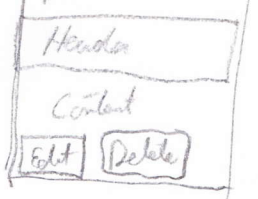 Header
Content
Edit Delete